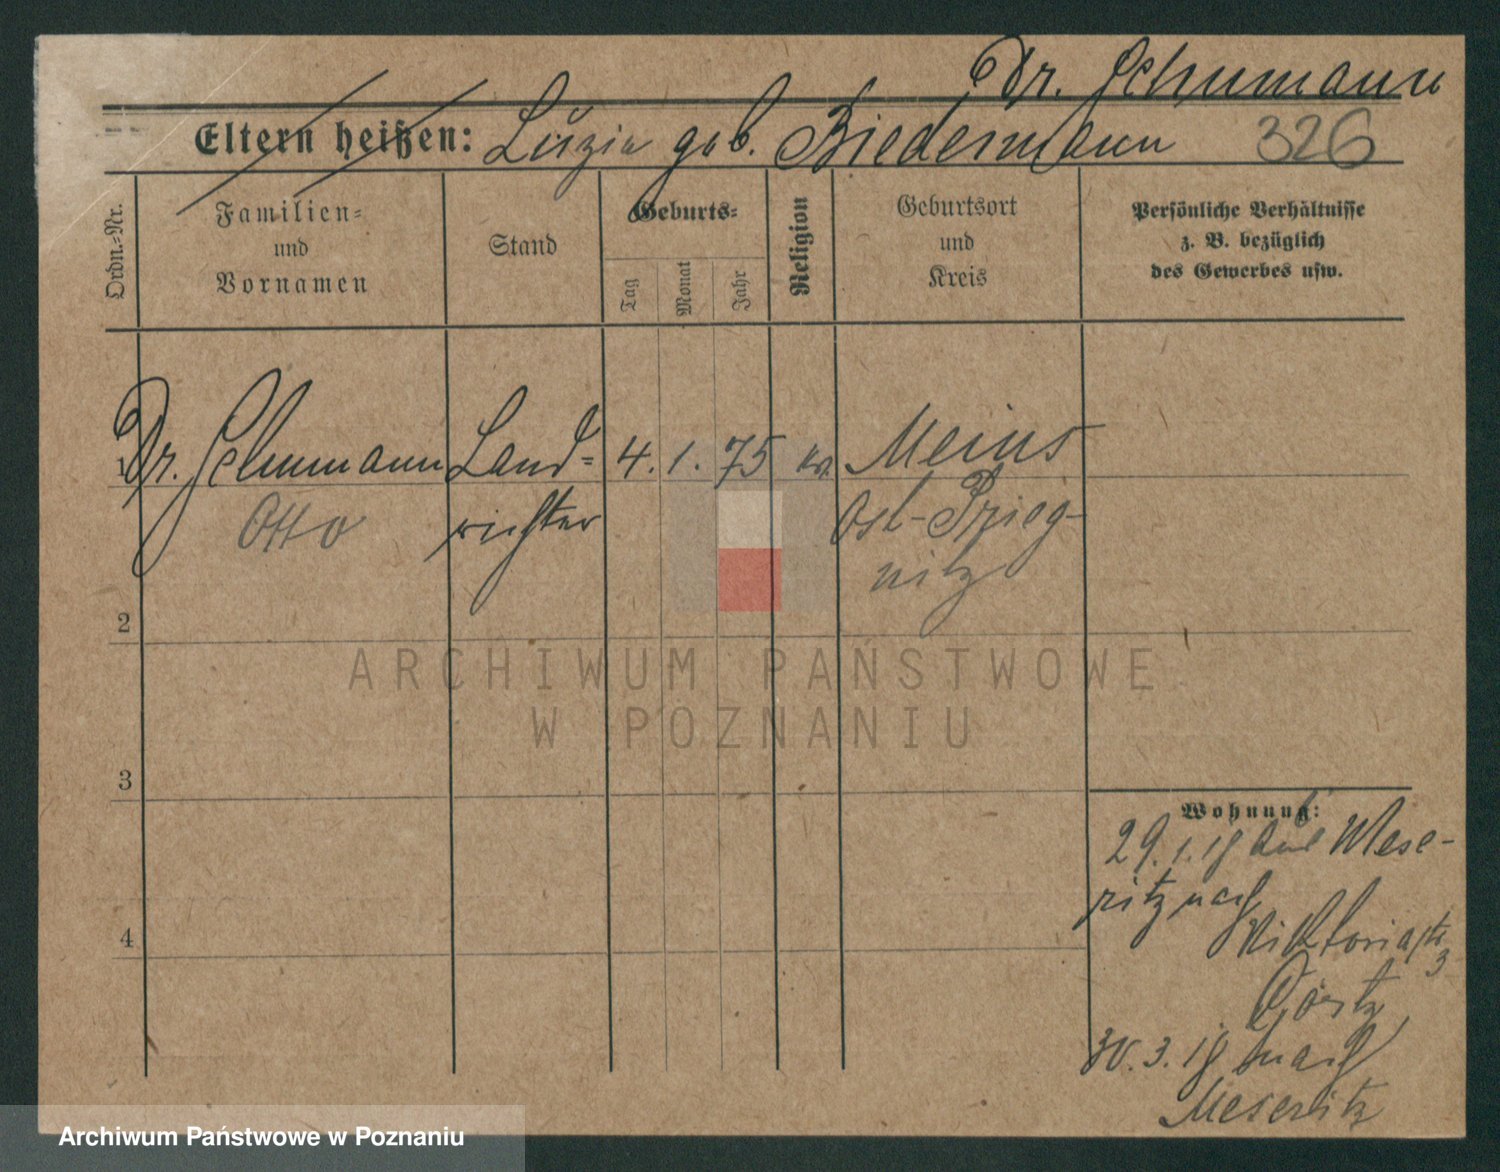 Dr. Schumann
Eltern heißen: Luzia geb. Biedermann 326
Ordn.-Nr.
Familien-
und
Vornamen
Stand
Geburts-
Tag
Monat
Jahr
Religion
Geburtsort
und
Kreis
Persönliche Verhältnisse
z. B. bezüglich
des Gewerbes usw.
1 Dr. Schumann Land- 4. 1. 75 Meins
Otto richter Ost-Prieg-
nitz
2
3
4
Wohnung:
29. 1. 18 aus Mese-
ritz nach
Viktoriastr
3
30. 3. 18 nach
Meseritz
ARCHIWUM PAŃSTWOWE
W POZNANIU
Archiwum Państwowe w Poznaniu